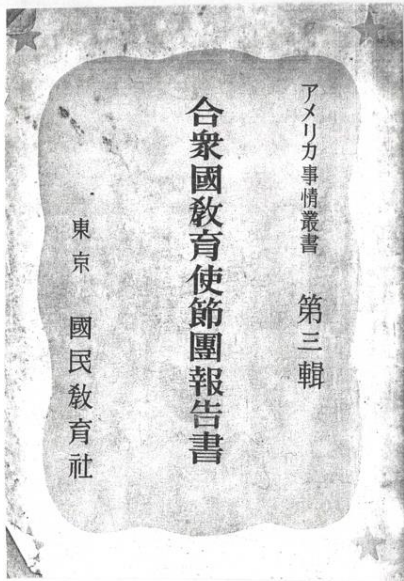 アメリカ事情叢書 第三輯
合衆國教育使節團報告書
東京 國民教育社